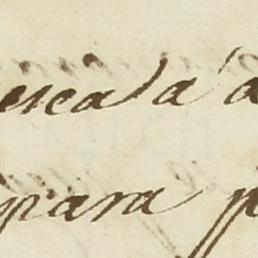 esca á a
para p